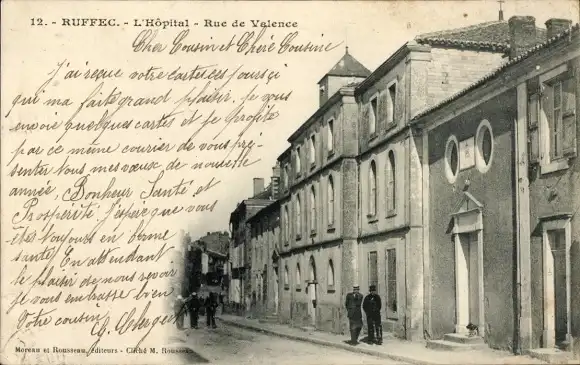 12. - RUFFEC. - L'Hôpital - Rue de Valence
Cher Cousin et Chère Cousine
J'ai reçue votre carte ces jours çi
qui m'a faite grand plaisir. je vous
envoie quelques cartes et je profite
par ce même courier de vous pré-
senter tous mes vœux de nouvelle
année, Bonheur Santé et
Prospérité. J'espère que vous
êtes toujours en bonne
santé. En attendant
le plaisir de nous revoir
je vous embrasse bien
Votre cousin
Moreau et Rousseau, éditeurs - Cliché M. Rousseau